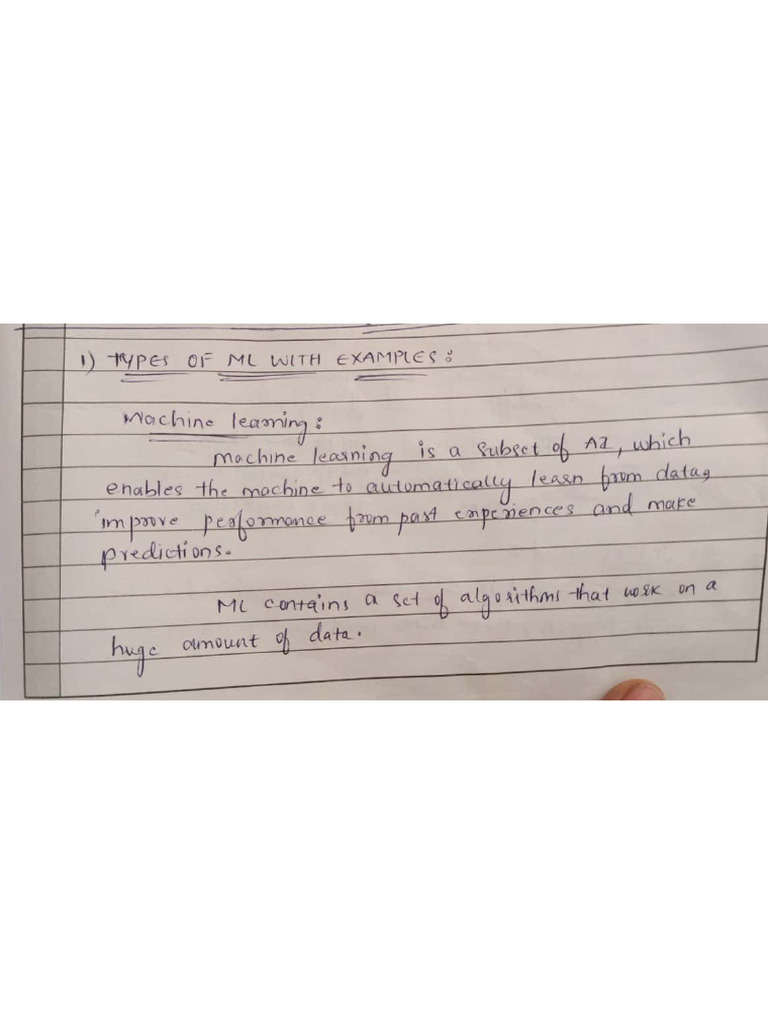 1) TYPES OF ML WITH EXAMPLES:
Machine learning:
Machine learning is a subset of AI, which
enables the machine to automatically learn from data,
improve performance from past experiences and make
predictions.
ML contains a set of algorithms that work on a
huge amount of data.